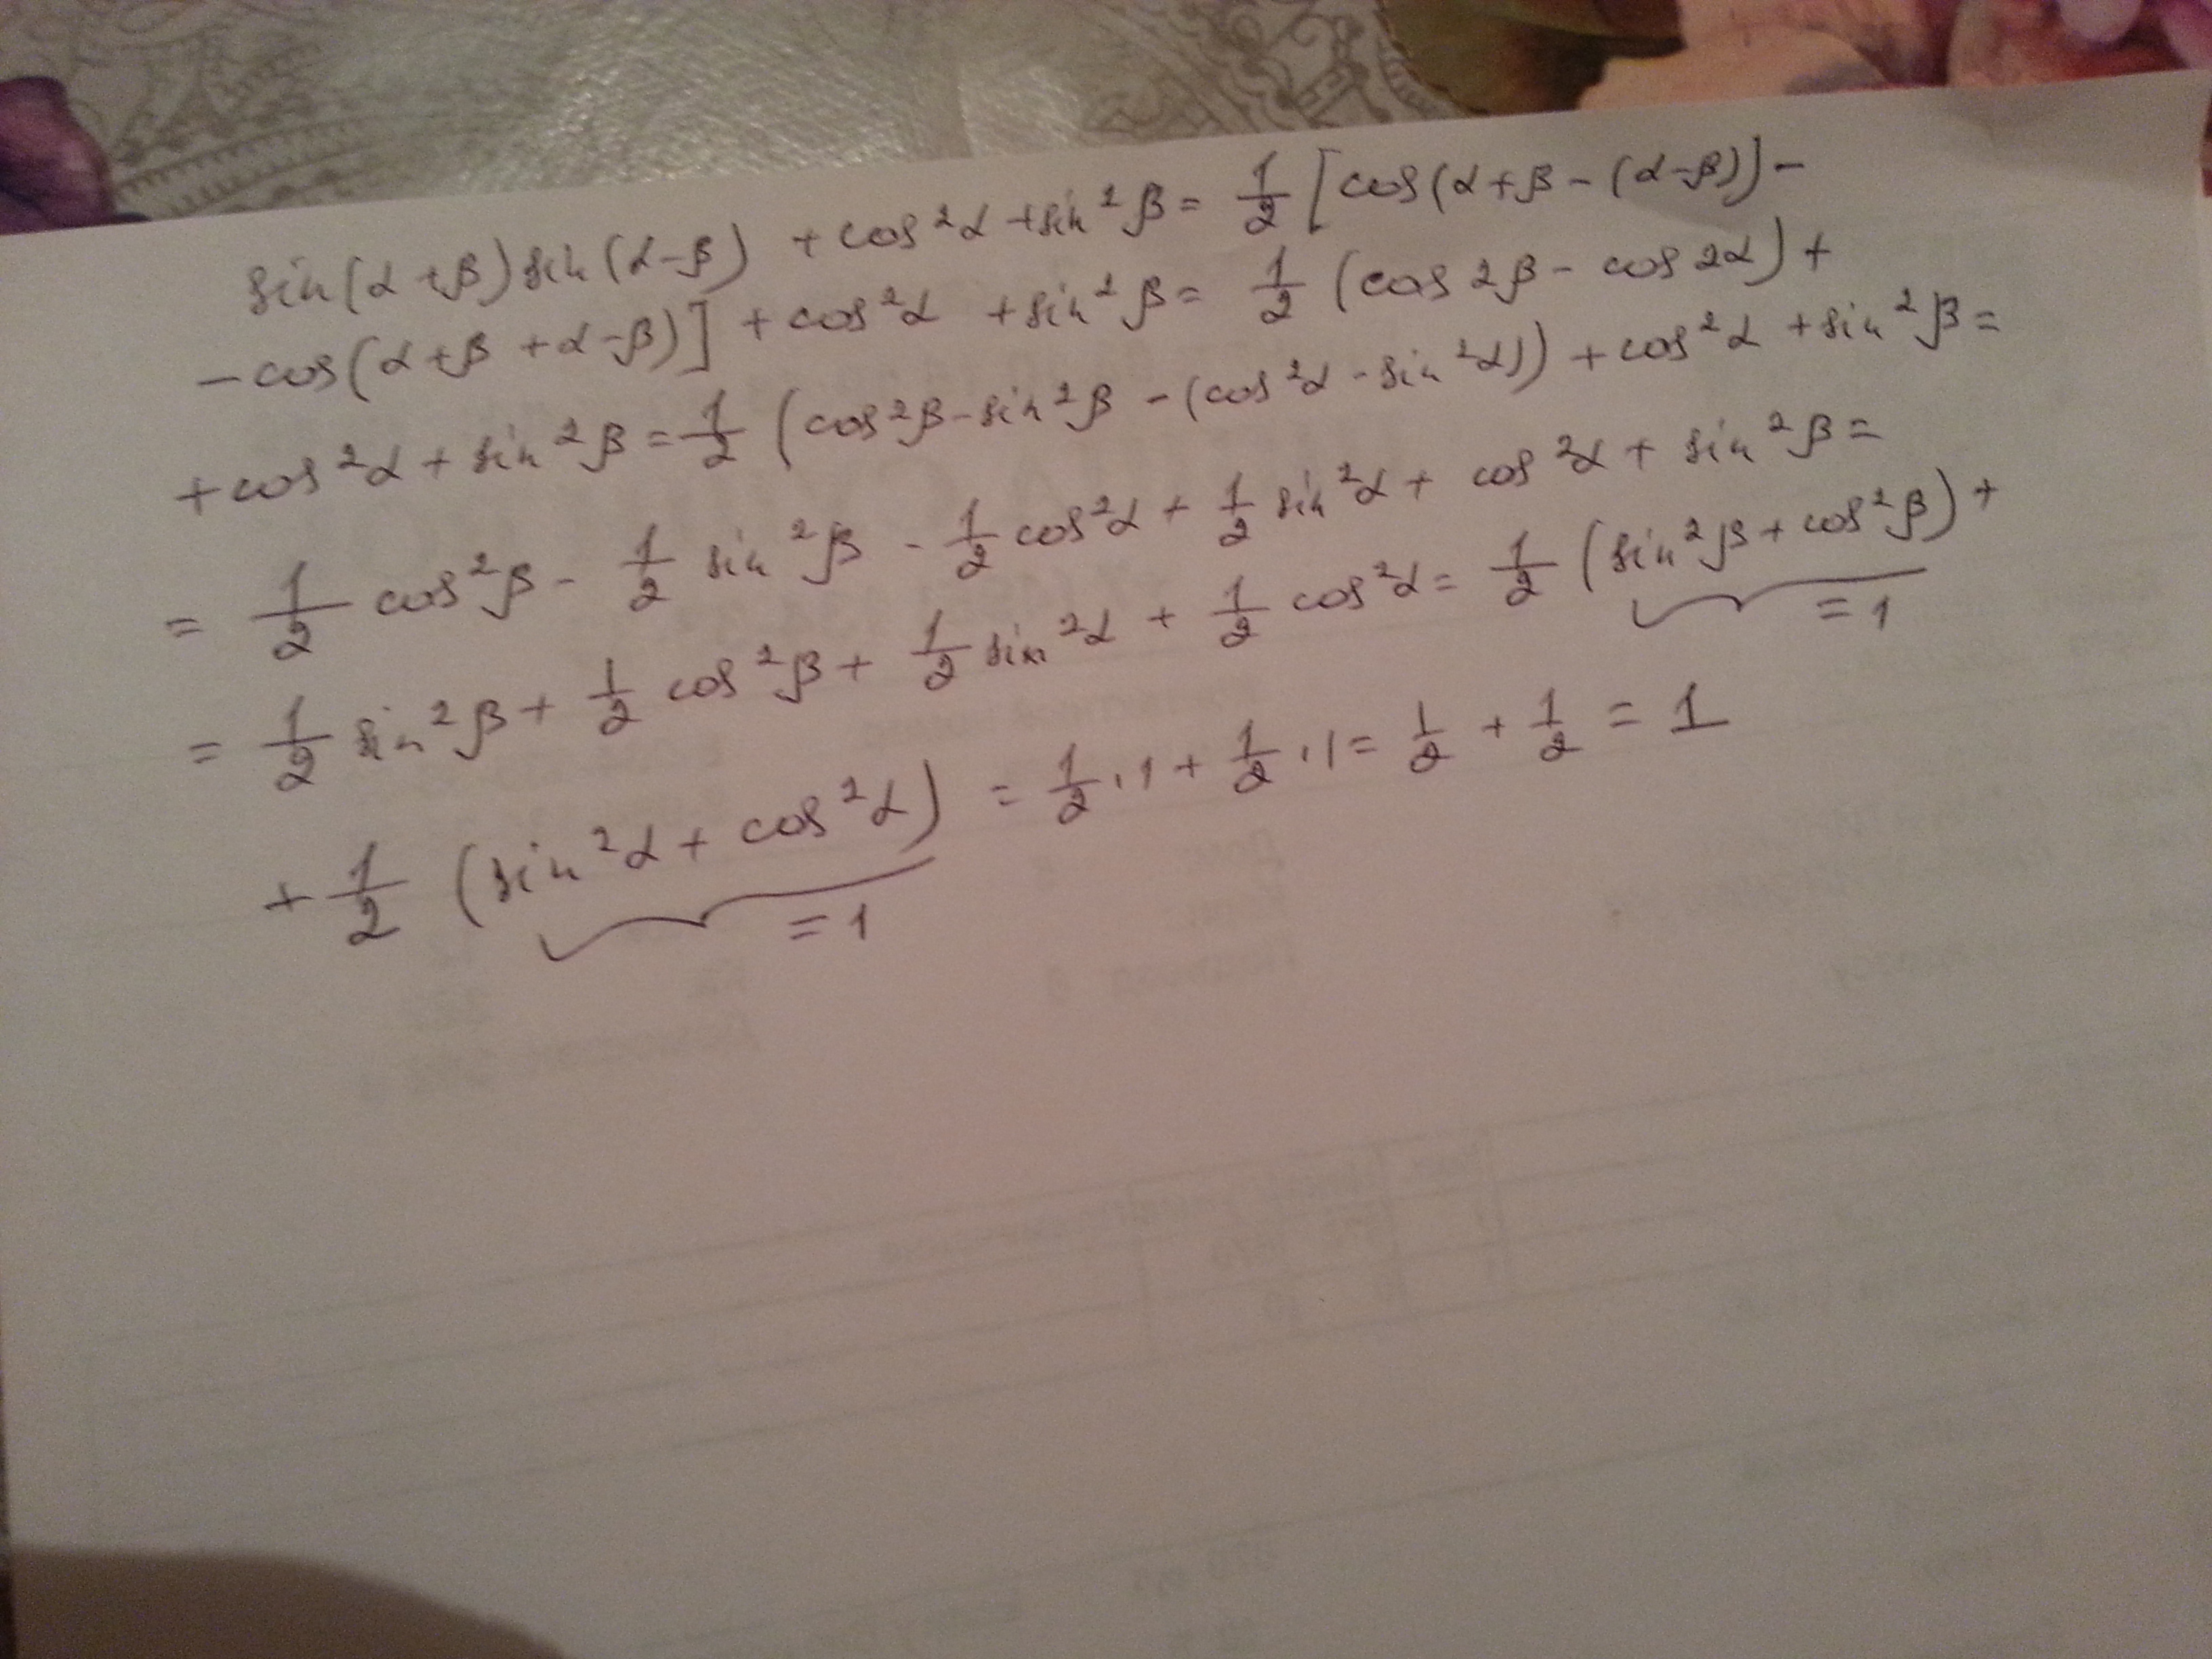 sin(α+β)sin(α-β) + cos²α + sin²β = 1/2 [cos(α+β-(α-β)) -
- cos(α+β+α-β)] + cos²α + sin²β = 1/2 (cos 2β - cos 2α) +
+ cos²α + sin²β = 1/2 (cos²β - sin²β - (cos²α - sin²α)) + cos²α + sin²β =
= 1/2 cos²β - 1/2 sin²β - 1/2 cos²α + 1/2 sin²α + cos²α + sin²β =
= 1/2 sin²β + 1/2 cos²β + 1/2 sin²α + 1/2 cos²α = 1/2 (sin²β + cos²β) +
= 1
+ 1/2 (sin²α + cos²α) = 1/2 · 1 + 1/2 · 1 = 1/2 + 1/2 = 1
= 1